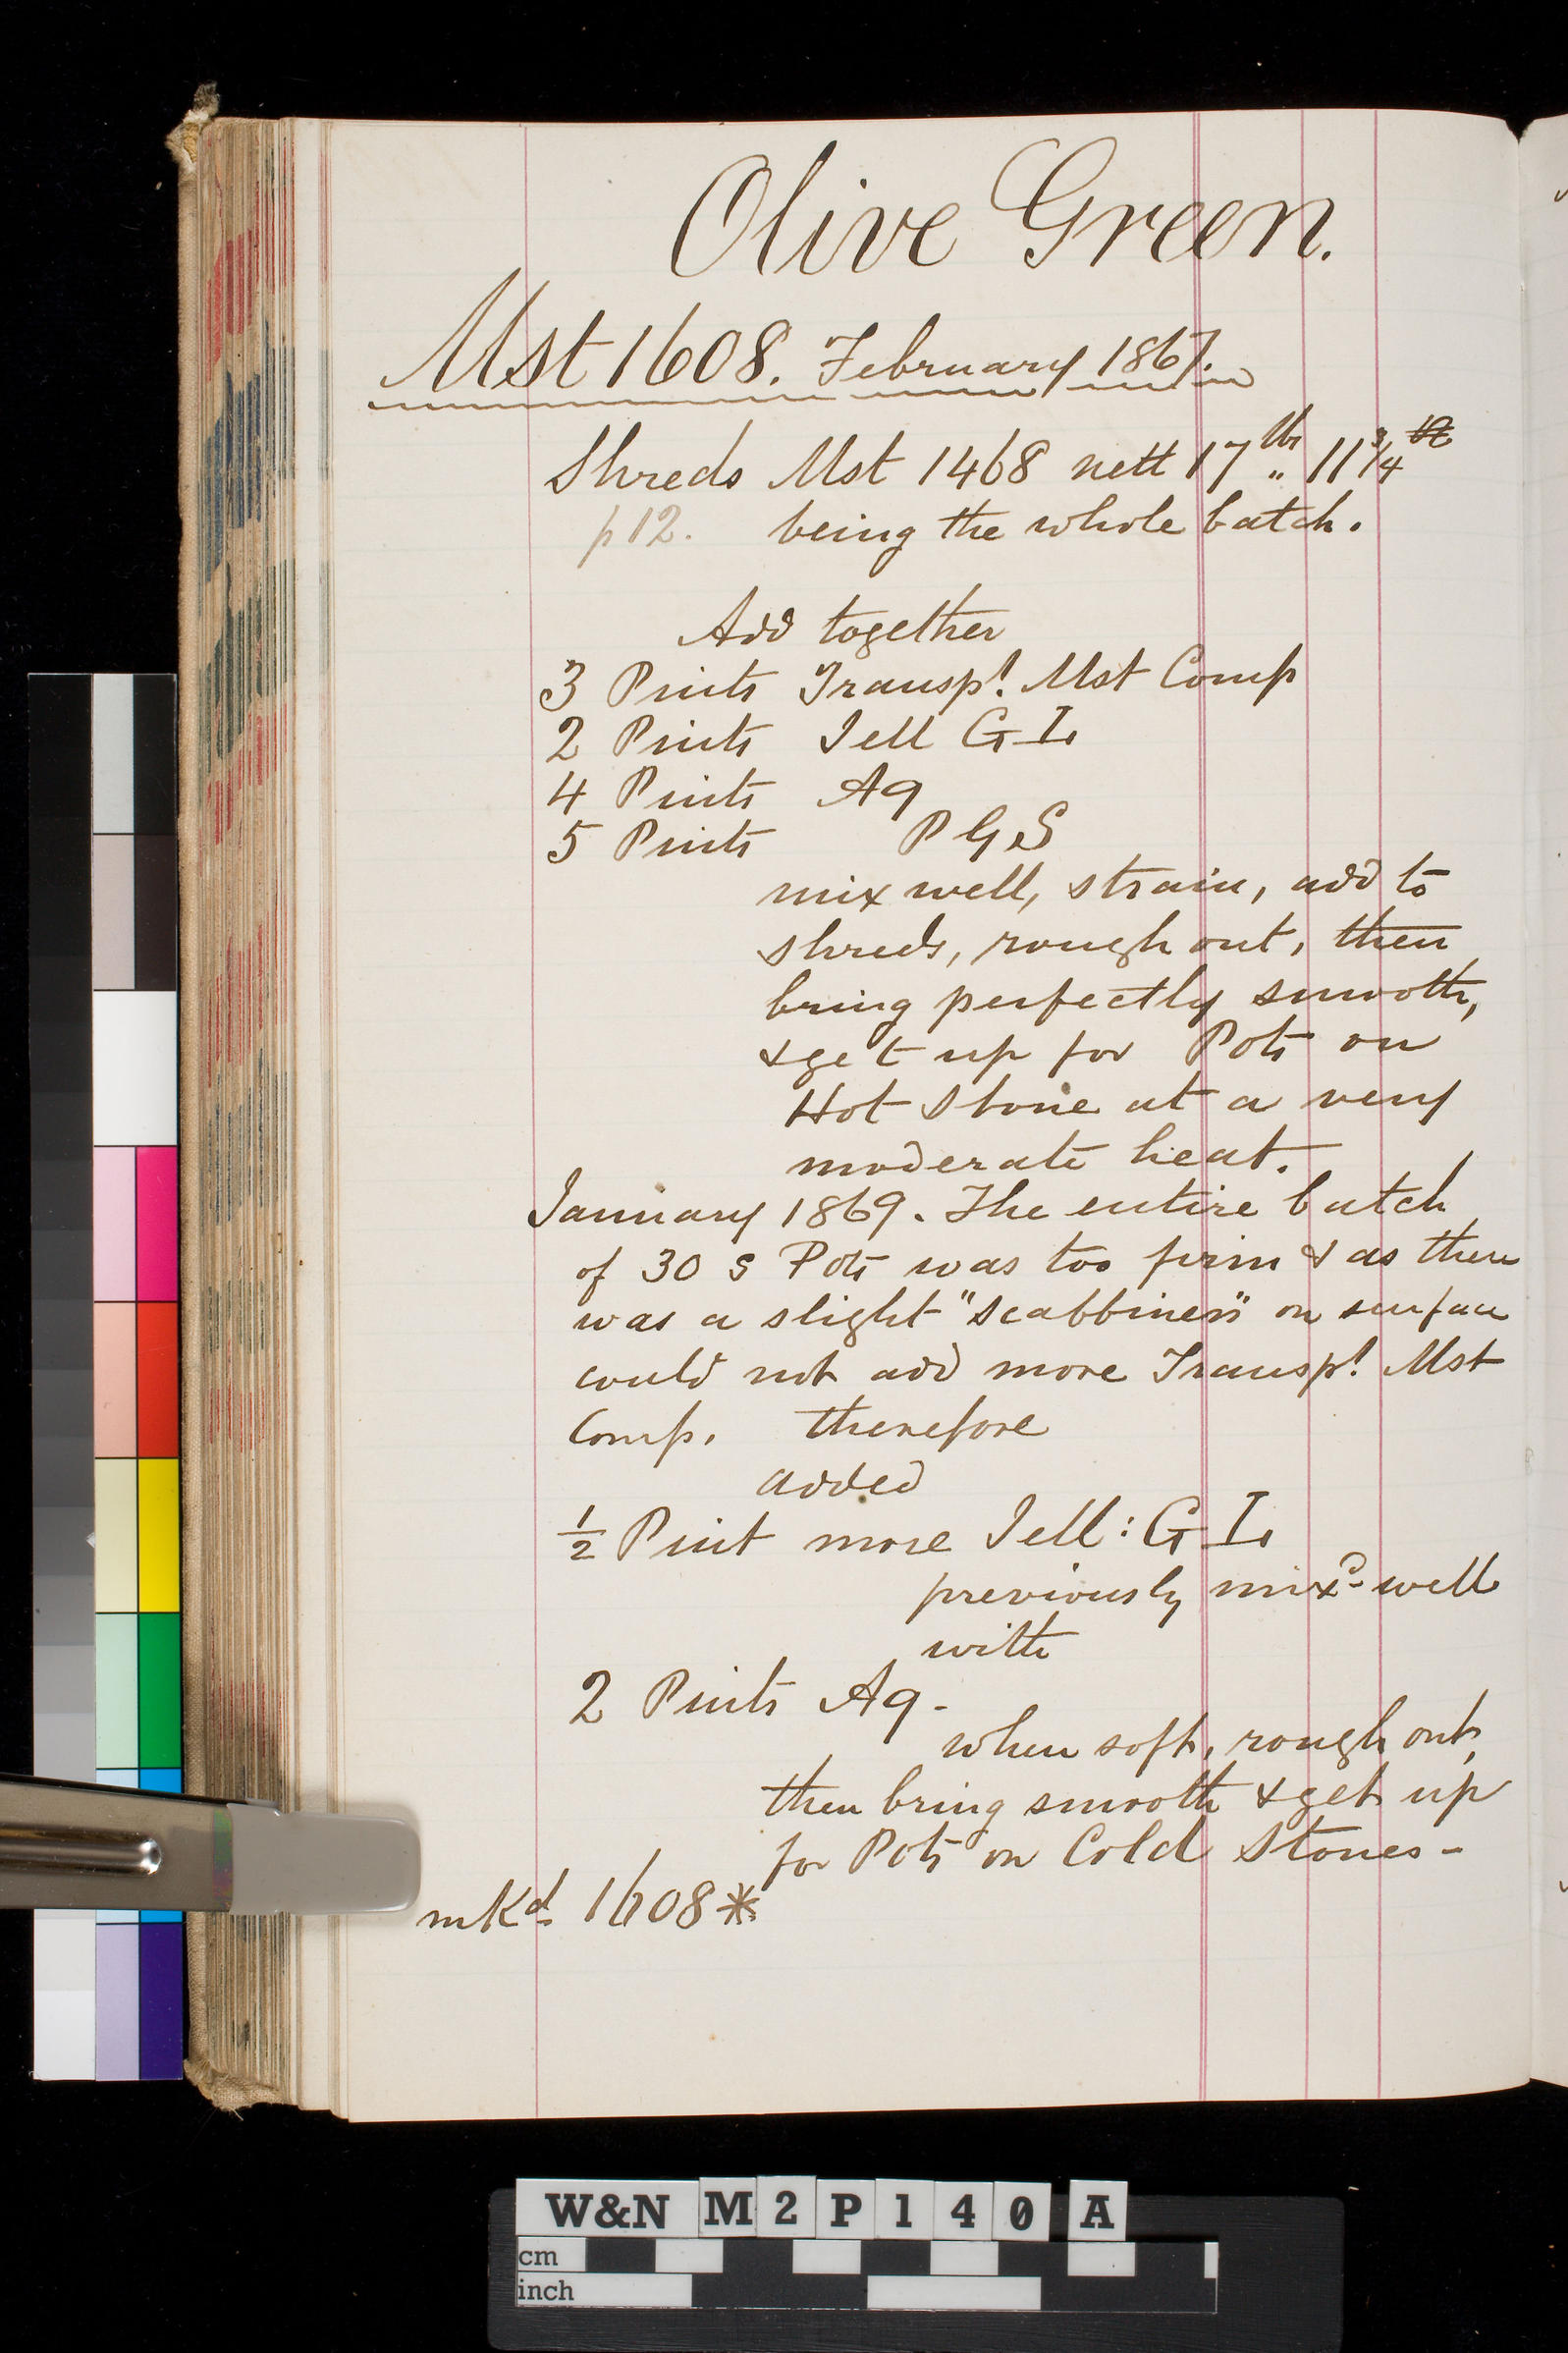 Olive Green.
Mst 1608. February 1867.
Shreds Mst 1468 nett 17 lbs " 11 3/4
p 12. being the whole batch.
Add together
3 Pints Transpt. Mst Comp
2 Pints Jell G I.
4 Pints Aq
5 Pints P G S
mix well, strain, add to
shreds, rough out, then
bring perfectly smooth,
& get up for Pots on
Hot Stone at a very
moderate heat.
January 1869. The entire batch
of 30 s Pots was too firm & as there
was a slight "scabbiness" on surface
could not add more Transpt. Mst
Comp. therefore
added
1/2 Pint more Jell: G I.
previously mixd well
with
2 Pints Aq -
when soft, rough out,
then bring smooth & get up
for Pots on Cold Stones -
mkd 1608*
W&N M2P140 A
cm
inch